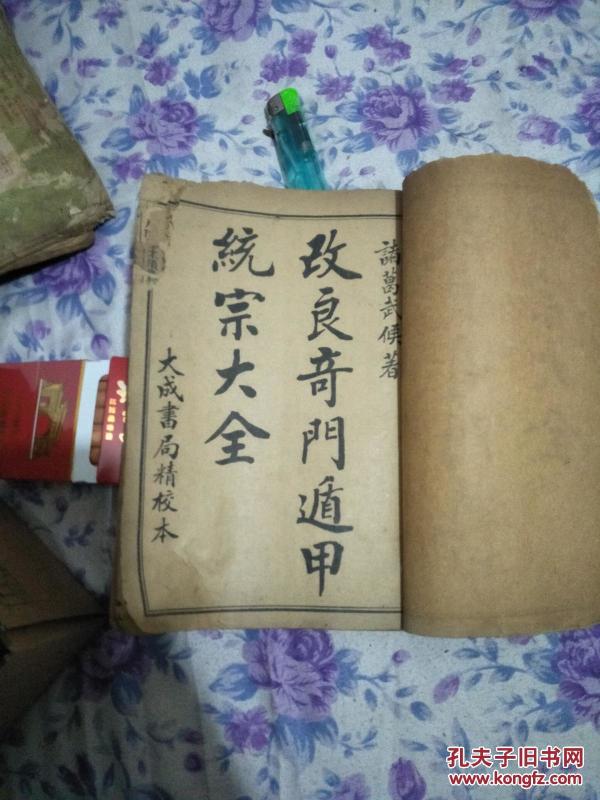 諸葛武侯著
改良奇門遁甲
統宗大全
大成書局精校本
孔夫子旧书网
www.kongfz.com